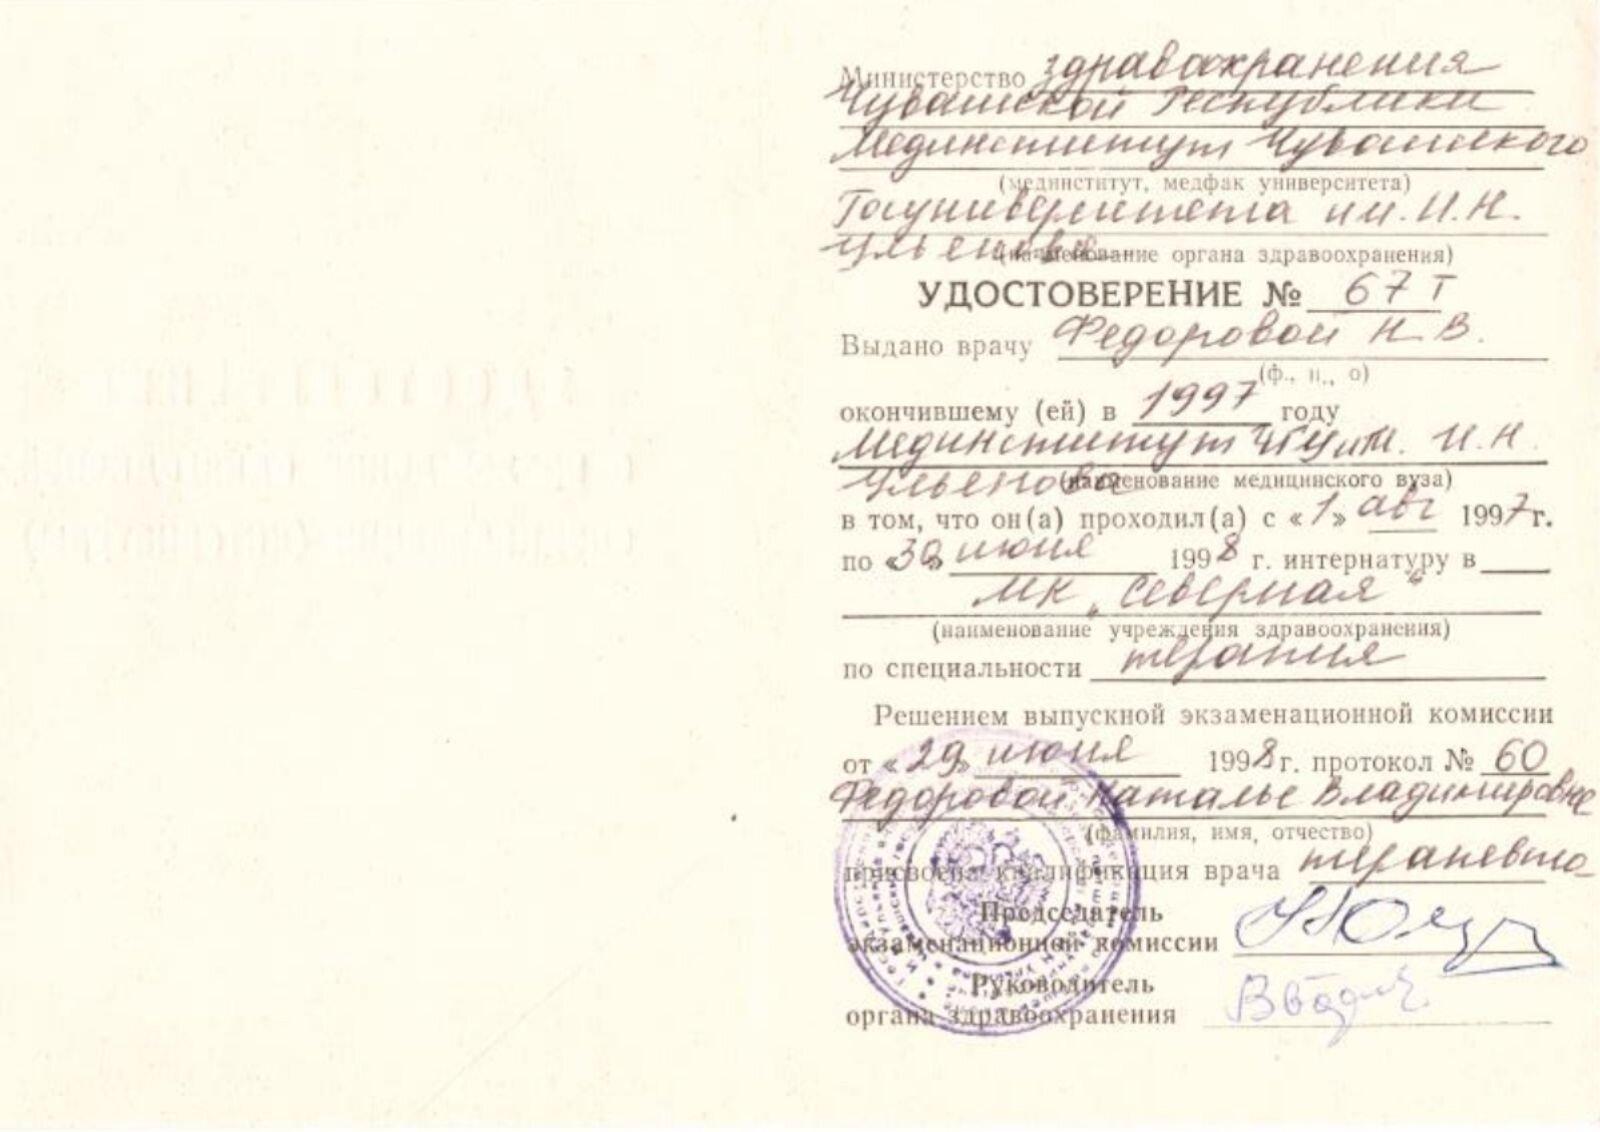 Министерство здравоохранения
Чувашской Республики
Мединститут Чувашского
(мединститут, медфак университета)
Госуниверситета им. И.Н.
Ульянова
(наименование органа здравоохранения)
УДОСТОВЕРЕНИЕ № 67 Т
Выдано врачу Федоровой Н.В.
(ф., и., о)
окончившему (ей) в 1997 году
Мединститут ЧГУ им. И.Н.
Ульянова
(наименование медицинского вуза)
в том, что он(а) проходил(а) с «1» авг 1997 г.
по «30» июня 1998 г. интернатуру в
МК „Северная“
(наименование учреждения здравоохранения)
по специальности терапия
Решением выпускной экзаменационной комиссии
от «29» июня 1998 г. протокол № 60
Федоровой Наталье Владимировне
(фамилия, имя, отчество)
присвоена квалификация врача терапевта
Председатель
экзаменационной комиссии
Руководитель
органа здравоохранения